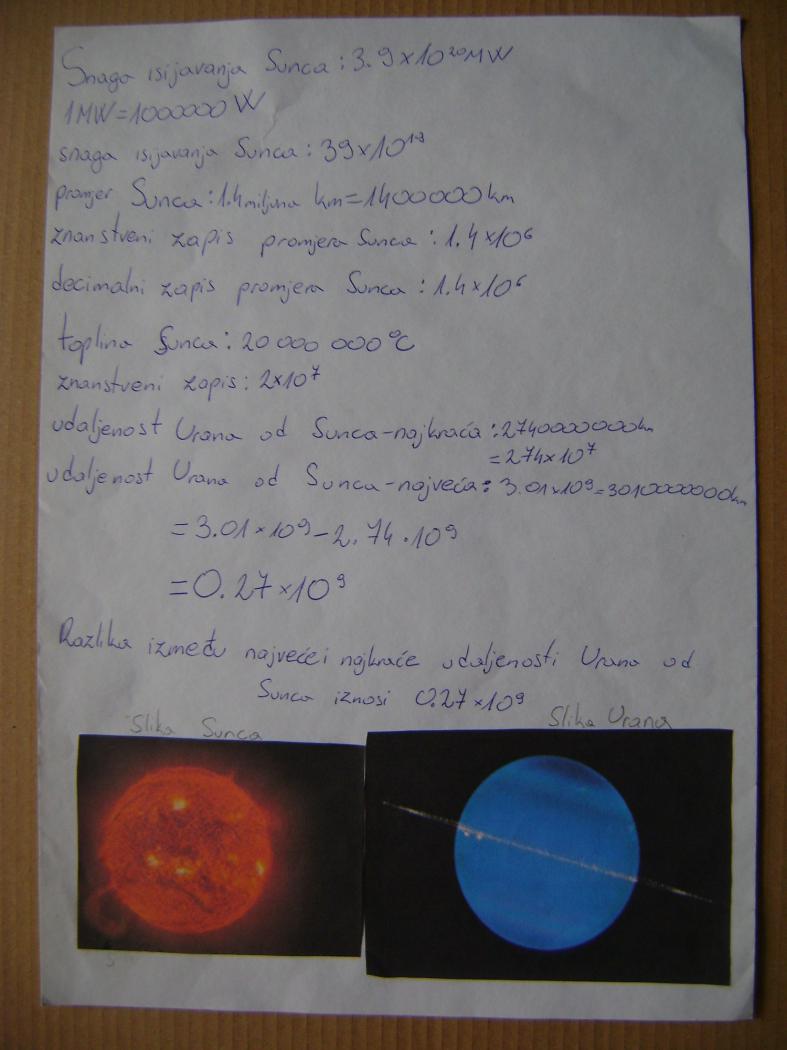 Snaga isijavanja Sunca : 3.9 x 10²⁰MW
1MW=1000000 W
snaga isijavanja Sunca : 39x10¹⁹
promjer Sunca : 1.4 miljuna km=1400000km
znanstveni zapis promjera Sunca : 1.4x10⁶
decimalni zapis promjera Sunca : 1.4x10⁶
toplina Sunca : 20 000 000 °C
znanstveni zapis : 2x10⁷
udaljenost Urana od Sunca-najkraća : 2740000000km
= 274x10⁷
udaljenost Urana od Sunca-najveća : 3.01x10⁹=3010000000km
= 3.01 x 10⁹-2.74 . 10⁹
= 0.27 x 10⁹
Razlika između najveće i najkraće udaljenosti Urana od
Sunca iznosi 0.27x10⁹
Slika Sunca
Slika Urana